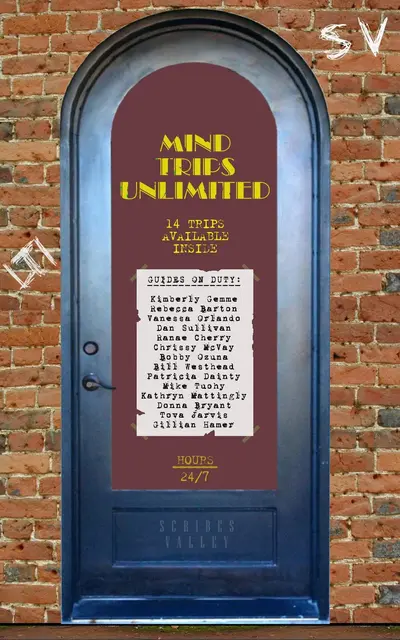 SV
MIND
TRIPS
UNLIMITED
14 TRIPS
AVAILABLE
INSIDE
GUIDES ON DUTY:
Kimberly Gemme
Rebecca Barton
Vanessa Orlando
Dan Sullivan
Ranae Cherry
Chrissy McVay
Bobby Ozuna
Bill Westhead
Patricia Dainty
Mike Tuohy
Kathryn Mattingly
Donna Bryant
Tova Jarvis
Gillian Hamer
HOURS
24/7
SCRIBES
VALLEY